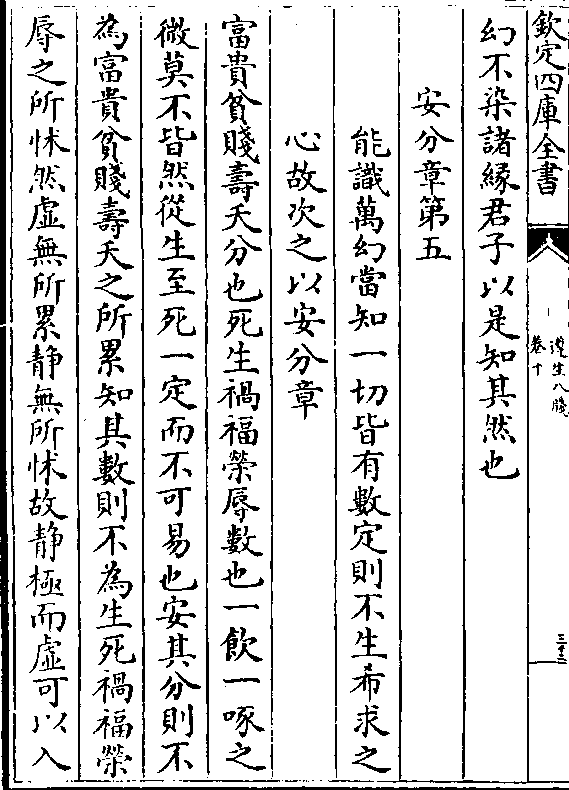 欽定四庫全書
遵生八牋
卷十
三十三
幻不染諸緣君子以是知其然也
安分章第五
能識萬幻當知一切皆有數定則不生希求之
心故次之以安分章
富貴貧賤壽夭分也死生禍福榮辱數也一飲一啄之
微莫不皆然從生至死一定而不可易也安其分則不
為富貴貧賤壽夭之所累知其數則不為生死禍福榮
辱之所怵然虛無所累静無所怵故静極而虛可以入